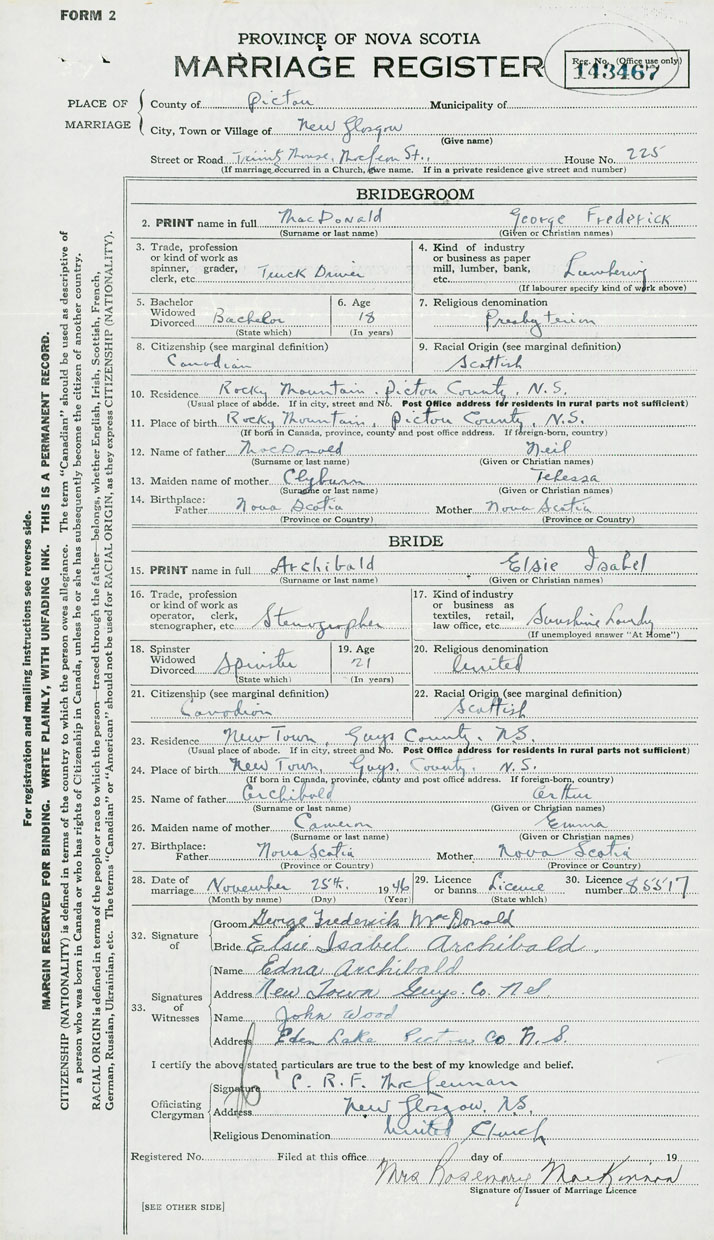 FORM 2
PROVINCE OF NOVA SCOTIA
MARRIAGE REGISTER
Reg. No. (Office use only)
143467
PLACE OF MARRIAGE
County of Pictou Municipality of
City, Town or Village of New Glasgow
(Give name)
Street or Road Trinity Manse, MacLean St., House No. 225
(If marriage occurred in a Church, give name. If in a private residence give street and number)
BRIDEGROOM
2. PRINT name in full MacDonald George Frederick
(Surname or last name) (Given or Christian names)
3. Trade, profession or kind of work as spinner, grader, clerk, etc. Truck Driver
4. Kind of industry or business as paper mill, lumber, bank, etc. Lumbering
(If labourer specify kind of work above)
5. Bachelor Widowed Divorced Bachelor
(State which)
6. Age 18
(In years)
7. Religious denomination
Presbyterian
8. Citizenship (see marginal definition)
Canadian
9. Racial Origin (see marginal definition)
Scottish
10. Residence Rocky Mountain, Pictou County, N.S.
(Usual place of abode. If in city, street and No. Post Office address for residents in rural parts not sufficient)
11. Place of birth Rocky Mountain, Pictou County, N.S.
(If born in Canada, province, county and post office address. If foreign-born, country)
12. Name of father MacDonald Neil
(Surname or last name) (Given or Christian names)
13. Maiden name of mother Clyburn Telessa
(Surname or last name) (Given or Christian names)
14. Birthplace: Father Nova Scotia Mother Nova Scotia
(Province or Country) (Province or Country)
BRIDE
15. PRINT name in full Archibald Elsie Isabel
(Surname or last name) (Given or Christian names)
16. Trade, profession or kind of work as operator, clerk, stenographer, etc. Stenographer
17. Kind of industry or business as textiles, retail, law office, etc. Sunshine Laundry
(If unemployed answer "At Home")
18. Spinster Widowed Divorced Spinster
(State which)
19. Age 21
(In years)
20. Religious denomination
United
21. Citizenship (see marginal definition)
Canadian
22. Racial Origin (see marginal definition)
Scottish
23. Residence New Town, Guys County, N.S.
(Usual place of abode. If in city, street and No. Post Office address for residents in rural parts not sufficient)
24. Place of birth New Town, Guys. County, N.S.
(If born in Canada, province, county and post office address. If foreign-born, country)
25. Name of father Archibald Arthur
(Surname or last name) (Given or Christian names)
26. Maiden name of mother Cameron Emma
(Surname or last name) (Given or Christian names)
27. Birthplace: Father Nova Scotia Mother Nova Scotia
(Province or Country) (Province or Country)
28. Date of marriage November 25th. 1946
(Month by name) (Day) (Year)
29. Licence or banns Licence
(State which)
30. Licence number 85517
32. Signature of
Groom George Frederick McDonald
Bride Elsie Isabel Archibald.
33. Signatures of Witnesses
Name Edna Archibald
Address New Town Guys. Co. N.S.
Name John Wood
Address Eden Lake Pictou Co. N.S.
I certify the above stated particulars are true to the best of my knowledge and belief.
Officiating Clergyman
Signature C. R. F. MacLennan
Address New Glasgow, N.S.
Religious Denomination United Church
Registered No. Filed at this office day of 19
Mrs Rosemary MacKinnon
Signature of Issuer of Marriage Licence
[SEE OTHER SIDE]
For registration and mailing instructions see reverse side.
MARGIN RESERVED FOR BINDING. WRITE PLAINLY, WITH UNFADING INK. THIS IS A PERMANENT RECORD.
CITIZENSHIP (NATIONALITY) is defined in terms of the country to which the person owes allegiance. The term "Canadian" should be used as descriptive of
a person who was born in Canada or who has rights of Citizenship in Canada, unless he or she has subsequently become the citizen of another country.
RACIAL ORIGIN is defined in terms of the people or race to which the person—traced through the father—belongs, whether English, Irish, Scottish, French,
German, Russian, Ukrainian, etc. The terms "Canadian" or "American" should not be used for RACIAL ORIGIN, as they express CITIZENSHIP (NATIONALITY).